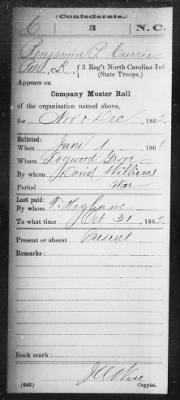 (Confederate.)
C 3 N.C.
Benjamin P. Currie
Pvt, Co. K, (3 Reg't North Carolina Inf.
(State Troops.)
Appears on
Company Muster Roll
of the organization named above,
for Nov & Dec, 1862
Enlisted:
When June 1, 186
Where Dogwood Grove
By whom David Williams
Period War
Last paid:
By whom
To what time Oct 31, 1862
Present or absent Present
Remarks:
Book mark:
(642)
Copyist.